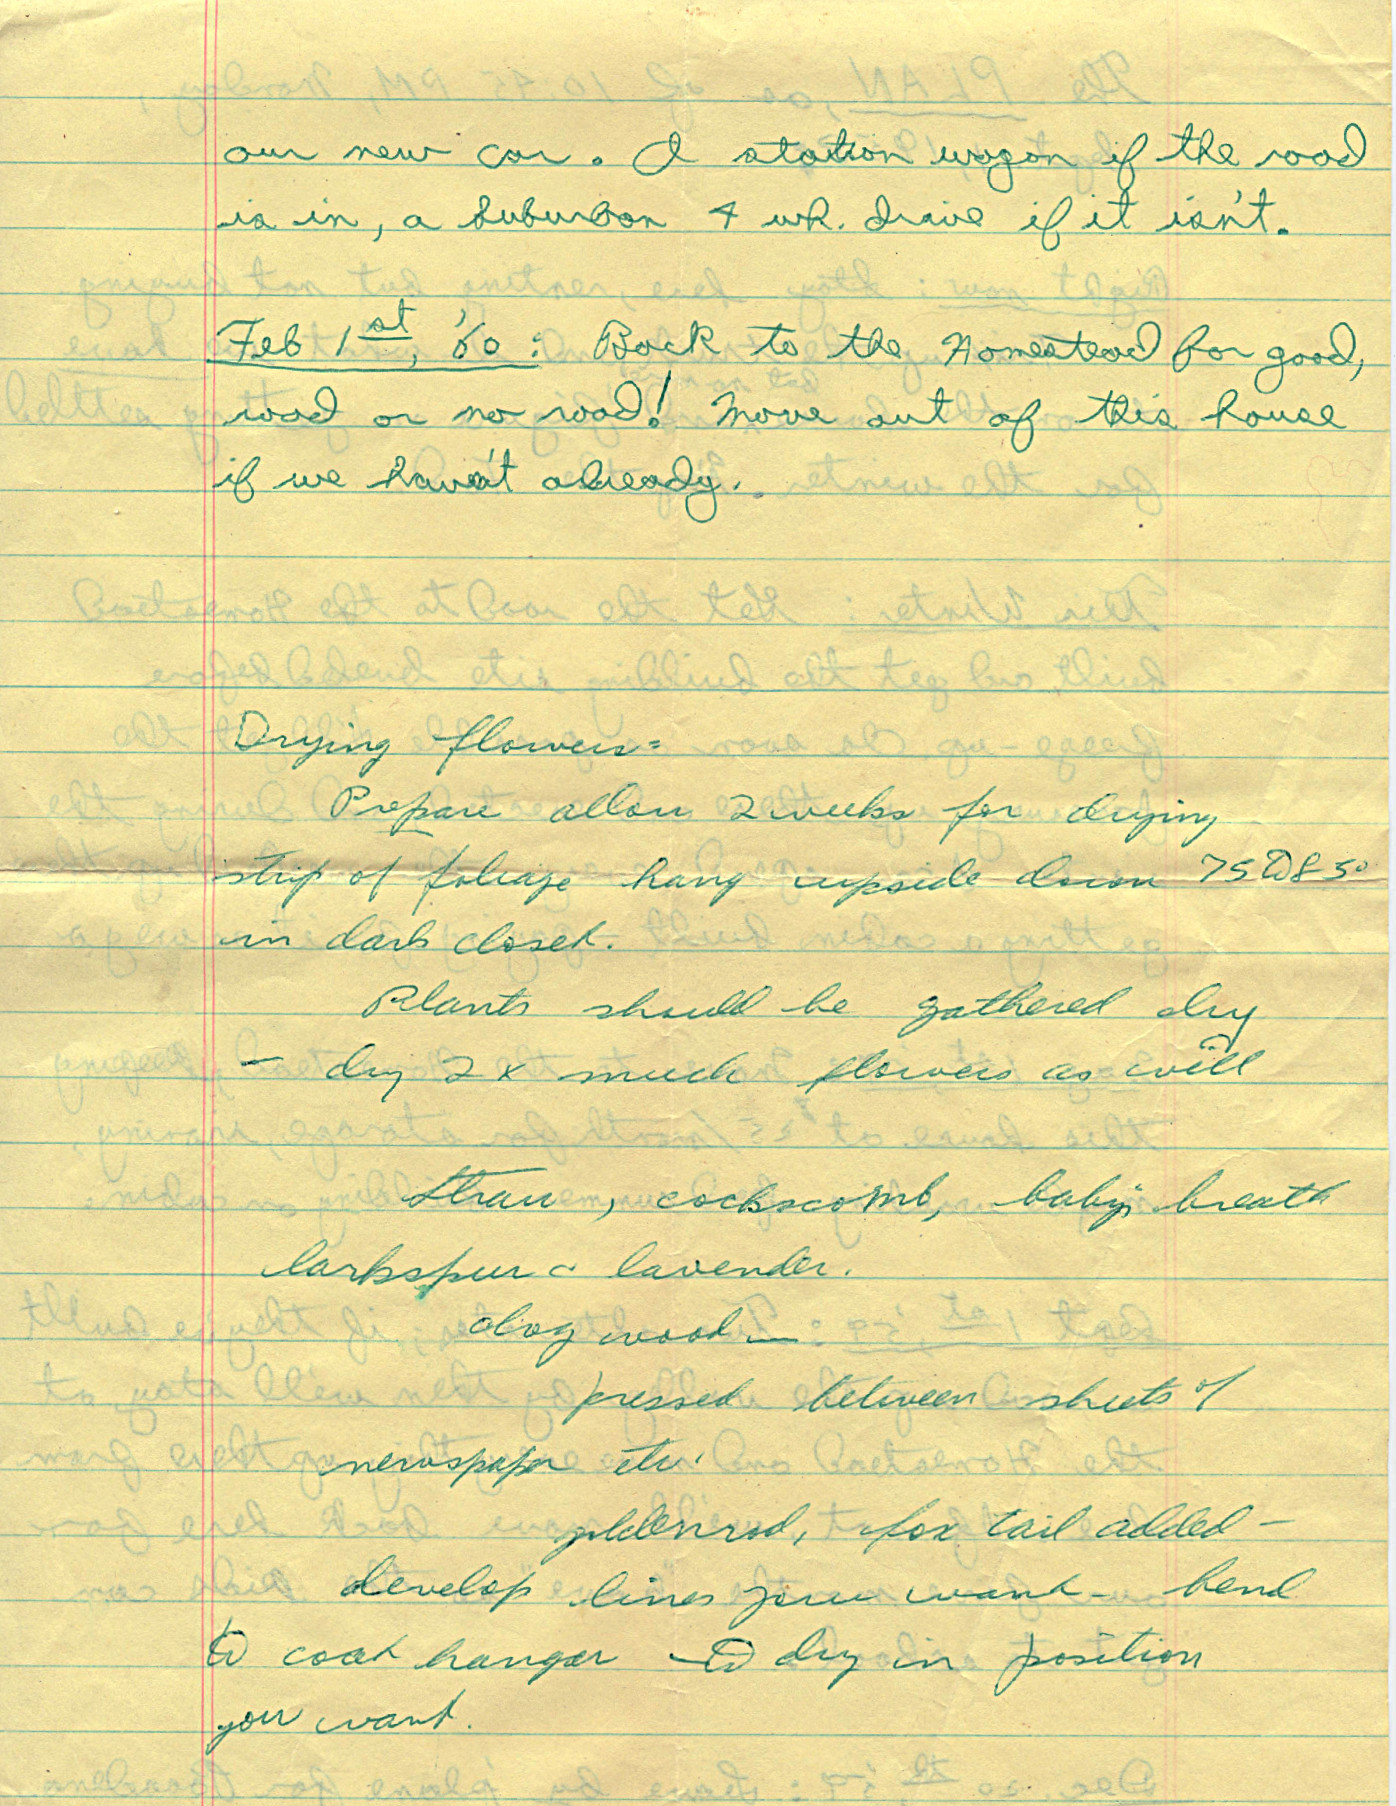 our new car. A station wagon if the road
is in, a suburban 4 wh. drive if it isn't.
Feb 1st, '60: Back to the Homestead for good,
road or no road! Move out of this house
if we haven't already.
Drying flowers=
Prepare allow 2 weeks for drying
strip of foliage hang upside down 75 to 85°
in dark closet.
Plants should be gathered dry
– dry 2 x much flowers as will
Straw, cockscomb, baby's breath
larkspur & lavender.
dogwood —
pressed between sheets of
newspaper etc.
goldenrod, fox tail added –
develop lines you want – bend
to coat hanger to dry in position
you want.